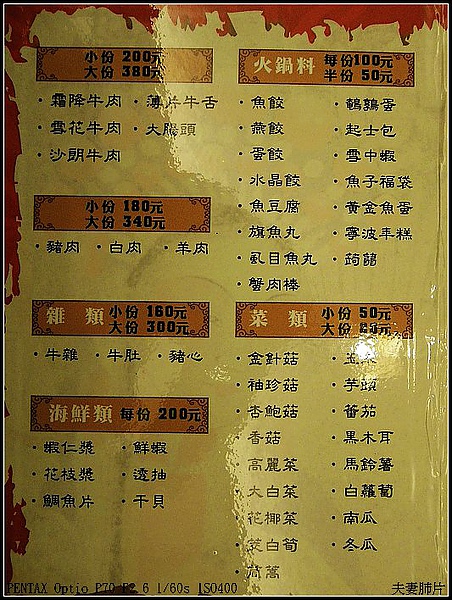 小份 200元
大份 380元
・霜降牛肉 ・薄片牛舌
・雪花牛肉 ・大腸頭
・沙朗牛肉
小份 180元
大份 340元
・豬肉 ・白肉 ・羊肉
雜類 小份 160元
大份 300元
・牛雜 ・牛肚 ・豬心
海鮮類 每份 200元
・蝦仁漿 ・鮮蝦
・花枝漿 ・透抽
・鯛魚片 ・干貝
火鍋料 每份100元
半份 50元
・魚餃 ・鵪鶉蛋
・燕餃 ・起士包
・蛋餃 ・雪中蝦
・水晶餃 ・魚子福袋
・魚豆腐 ・黃金魚蛋
・旗魚丸 ・寧波年糕
・虱目魚丸 ・蒟蒻
・蟹肉棒
菜類 小份 50元
大份
・金針菇 ・玉米
・袖珍菇 ・芋頭
・杏鮑菇 ・番茄
・香菇 ・黑木耳
・高麗菜 ・馬鈴薯
・大白菜 ・白蘿蔔
・花椰菜 ・南瓜
・茭白筍 ・冬瓜
・茼蒿
PENTAX Optio P70 F2.6 1/60s ISO400
夫妻肺片